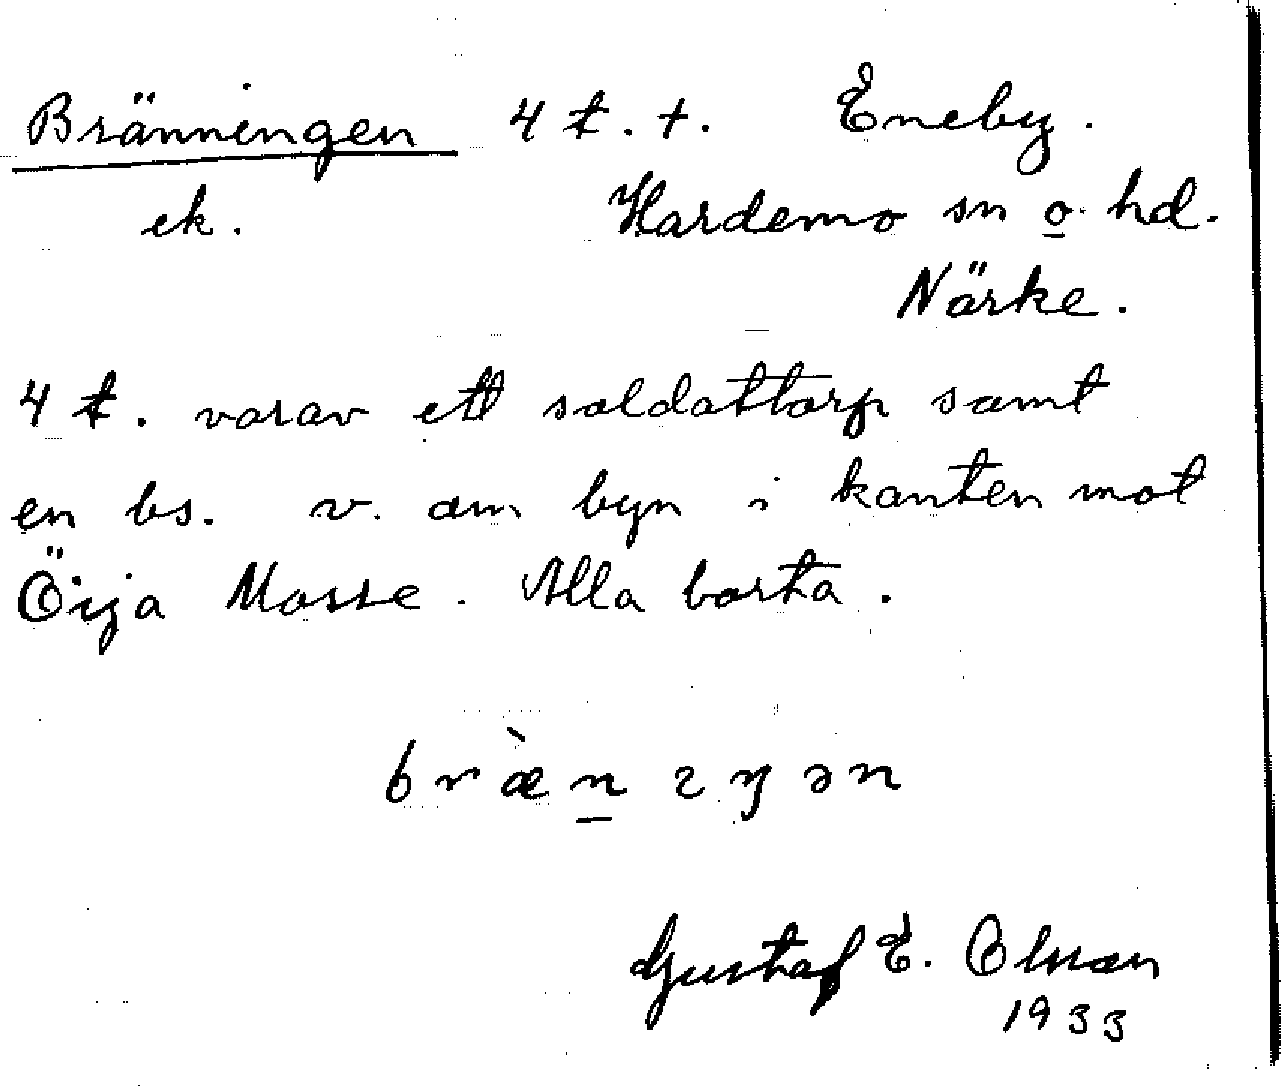 Bränningen 4 t. †. Eneby.
ek. Hardemo sn o. hd.
Närke.
4 t. varav ett soldattorp samt
en bs. v. om byn i kanten mot
Öija Mosse. Alla borta.
bræ̀n̲ıŋən
Gustaf E. Olsson
1933